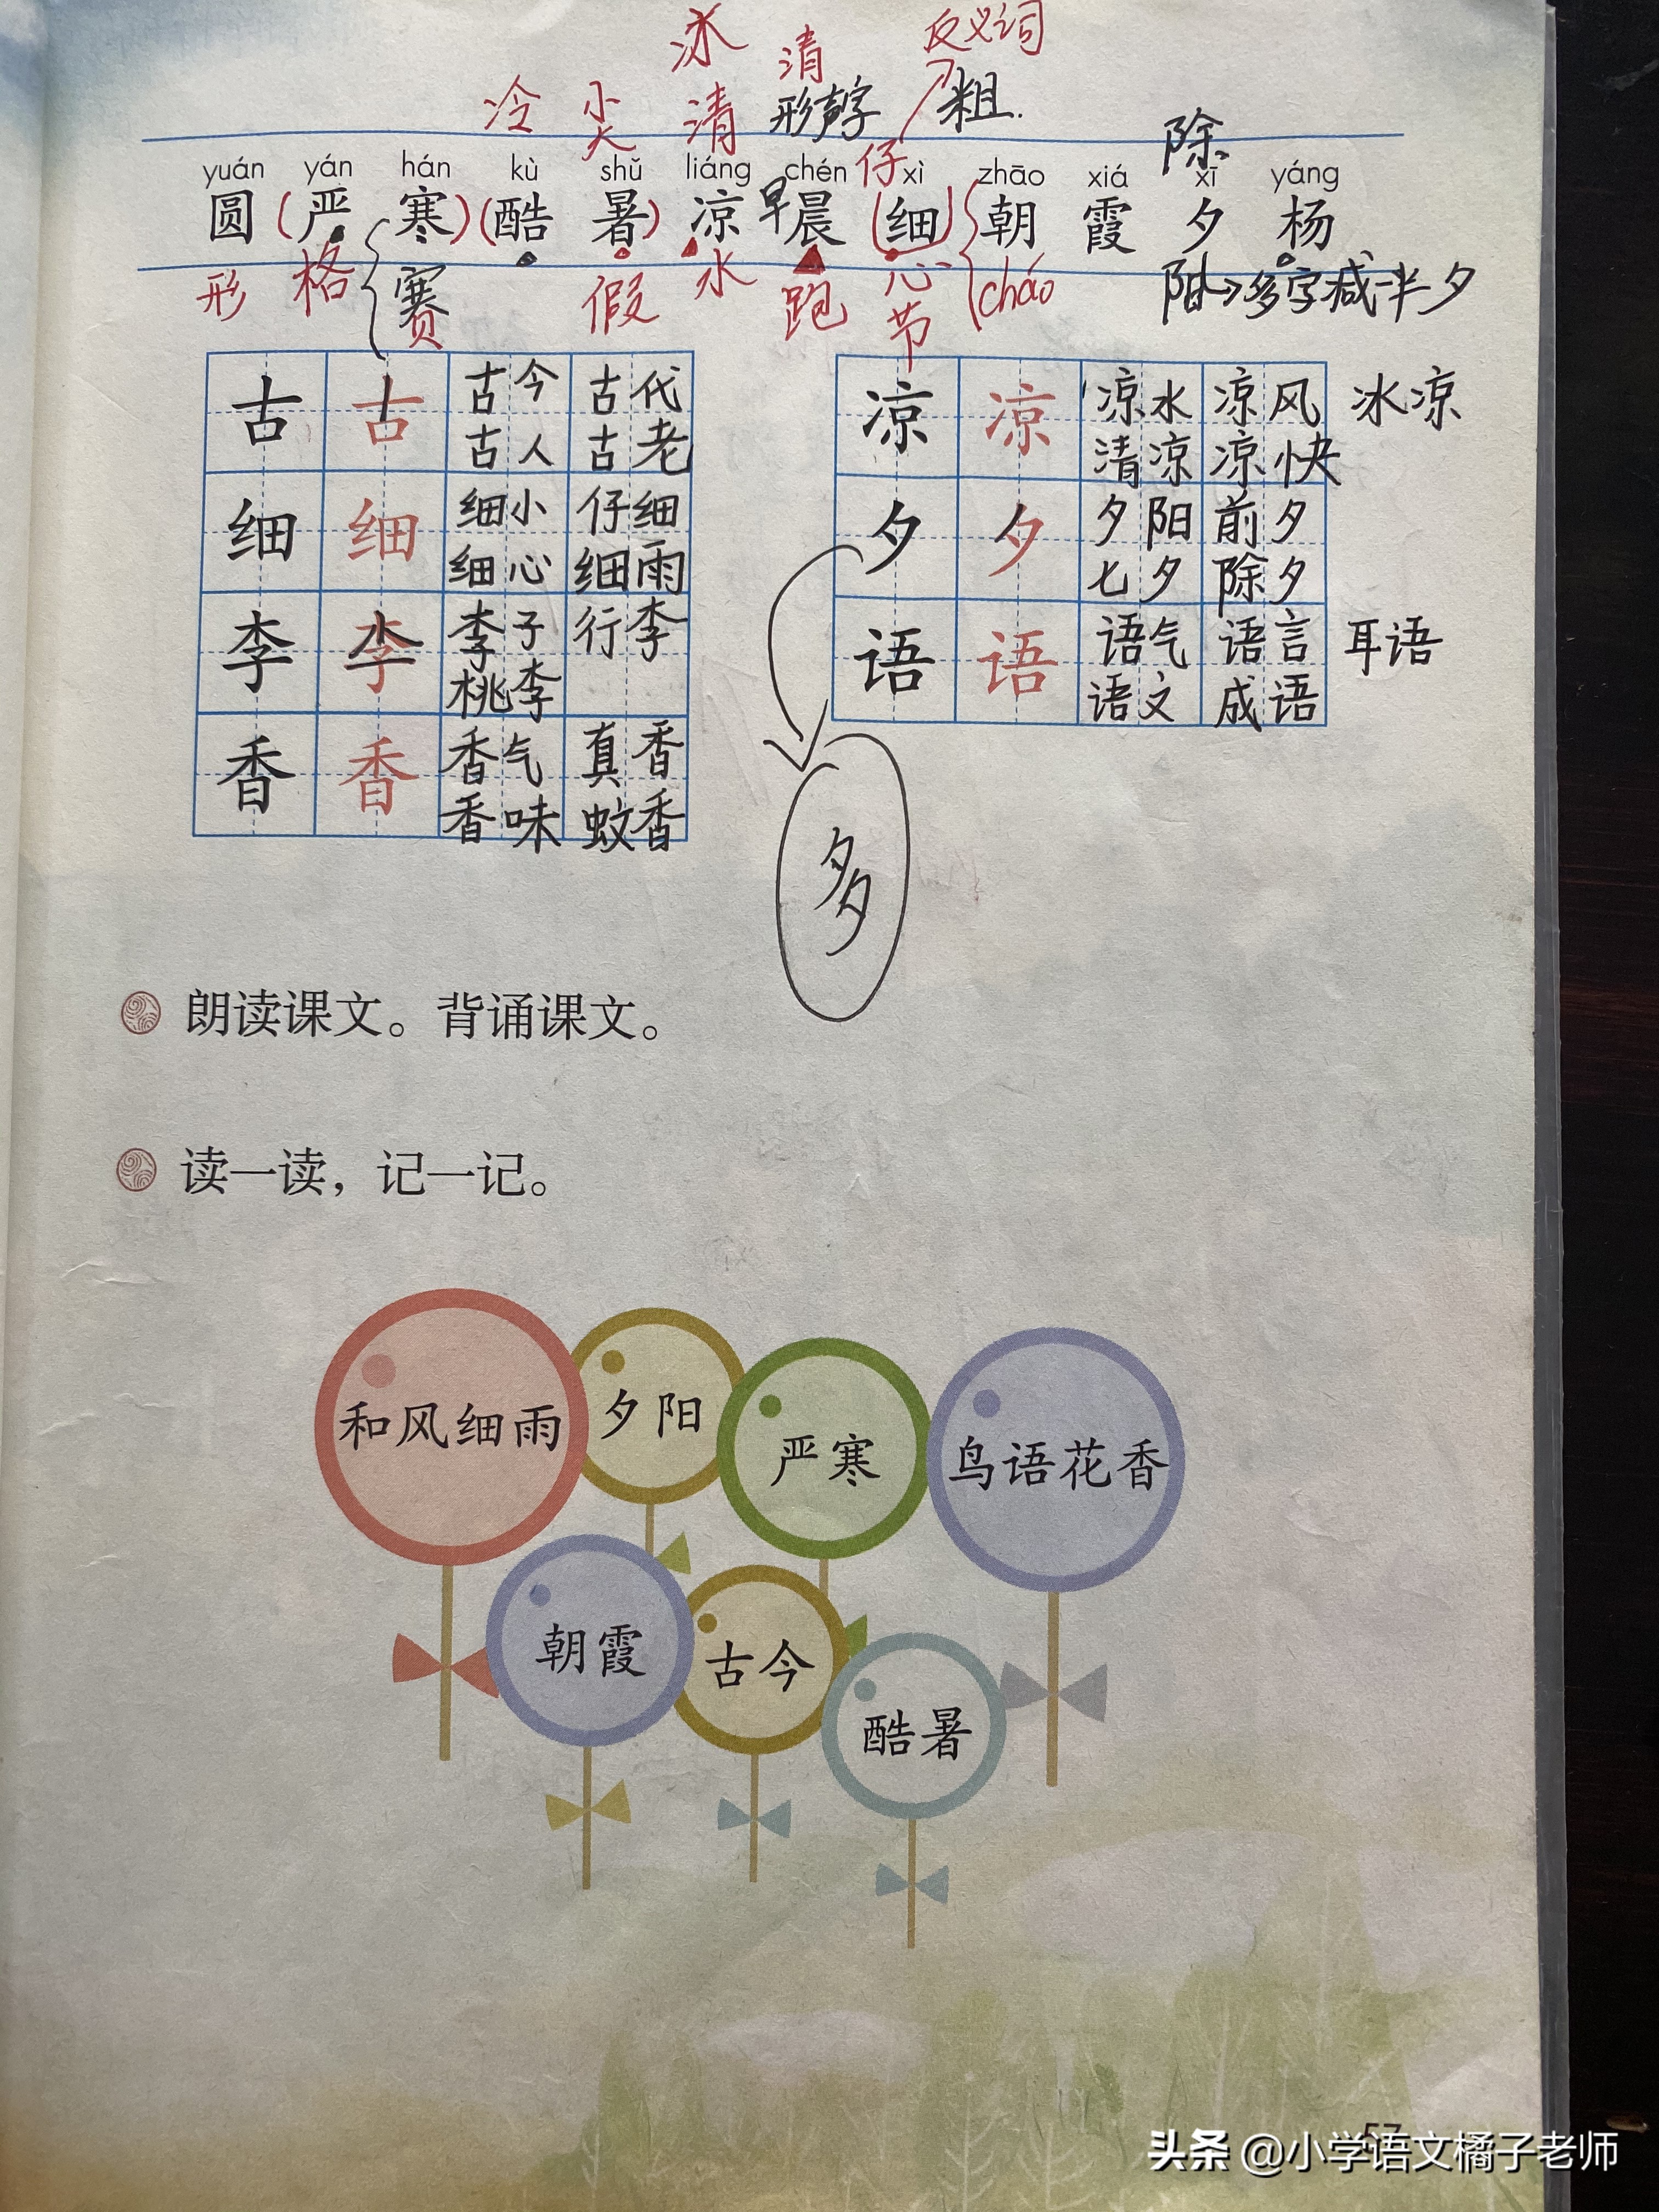 冰
清
反义词
冷
尖
清
形声字
粗.
除
仔
yuán yán hán kù shǔ liáng chén xì zhāo xiá xī yáng
圆(严寒)(酷暑)凉早晨(细)朝霞夕杨
形
格
赛
假
水
跑
心
节
cháo
阳→多字减一半夕
古 古 古今 古代
古人 古老
细 细 细小 仔细
细心 细雨
李 李 李子 行李
桃李
香 香 香气 真香
香味 蚊香
凉 凉 凉水 凉风 冰凉
清凉 凉快
夕 夕 夕阳 前夕
七夕 除夕
语 语 语气 语言 耳语
语文 成语
多
朗读课文。背诵课文。
读一读,记一记。
和风细雨
夕阳
严寒
鸟语花香
朝霞
古今
酷暑
57
头条 @小学语文橘子老师